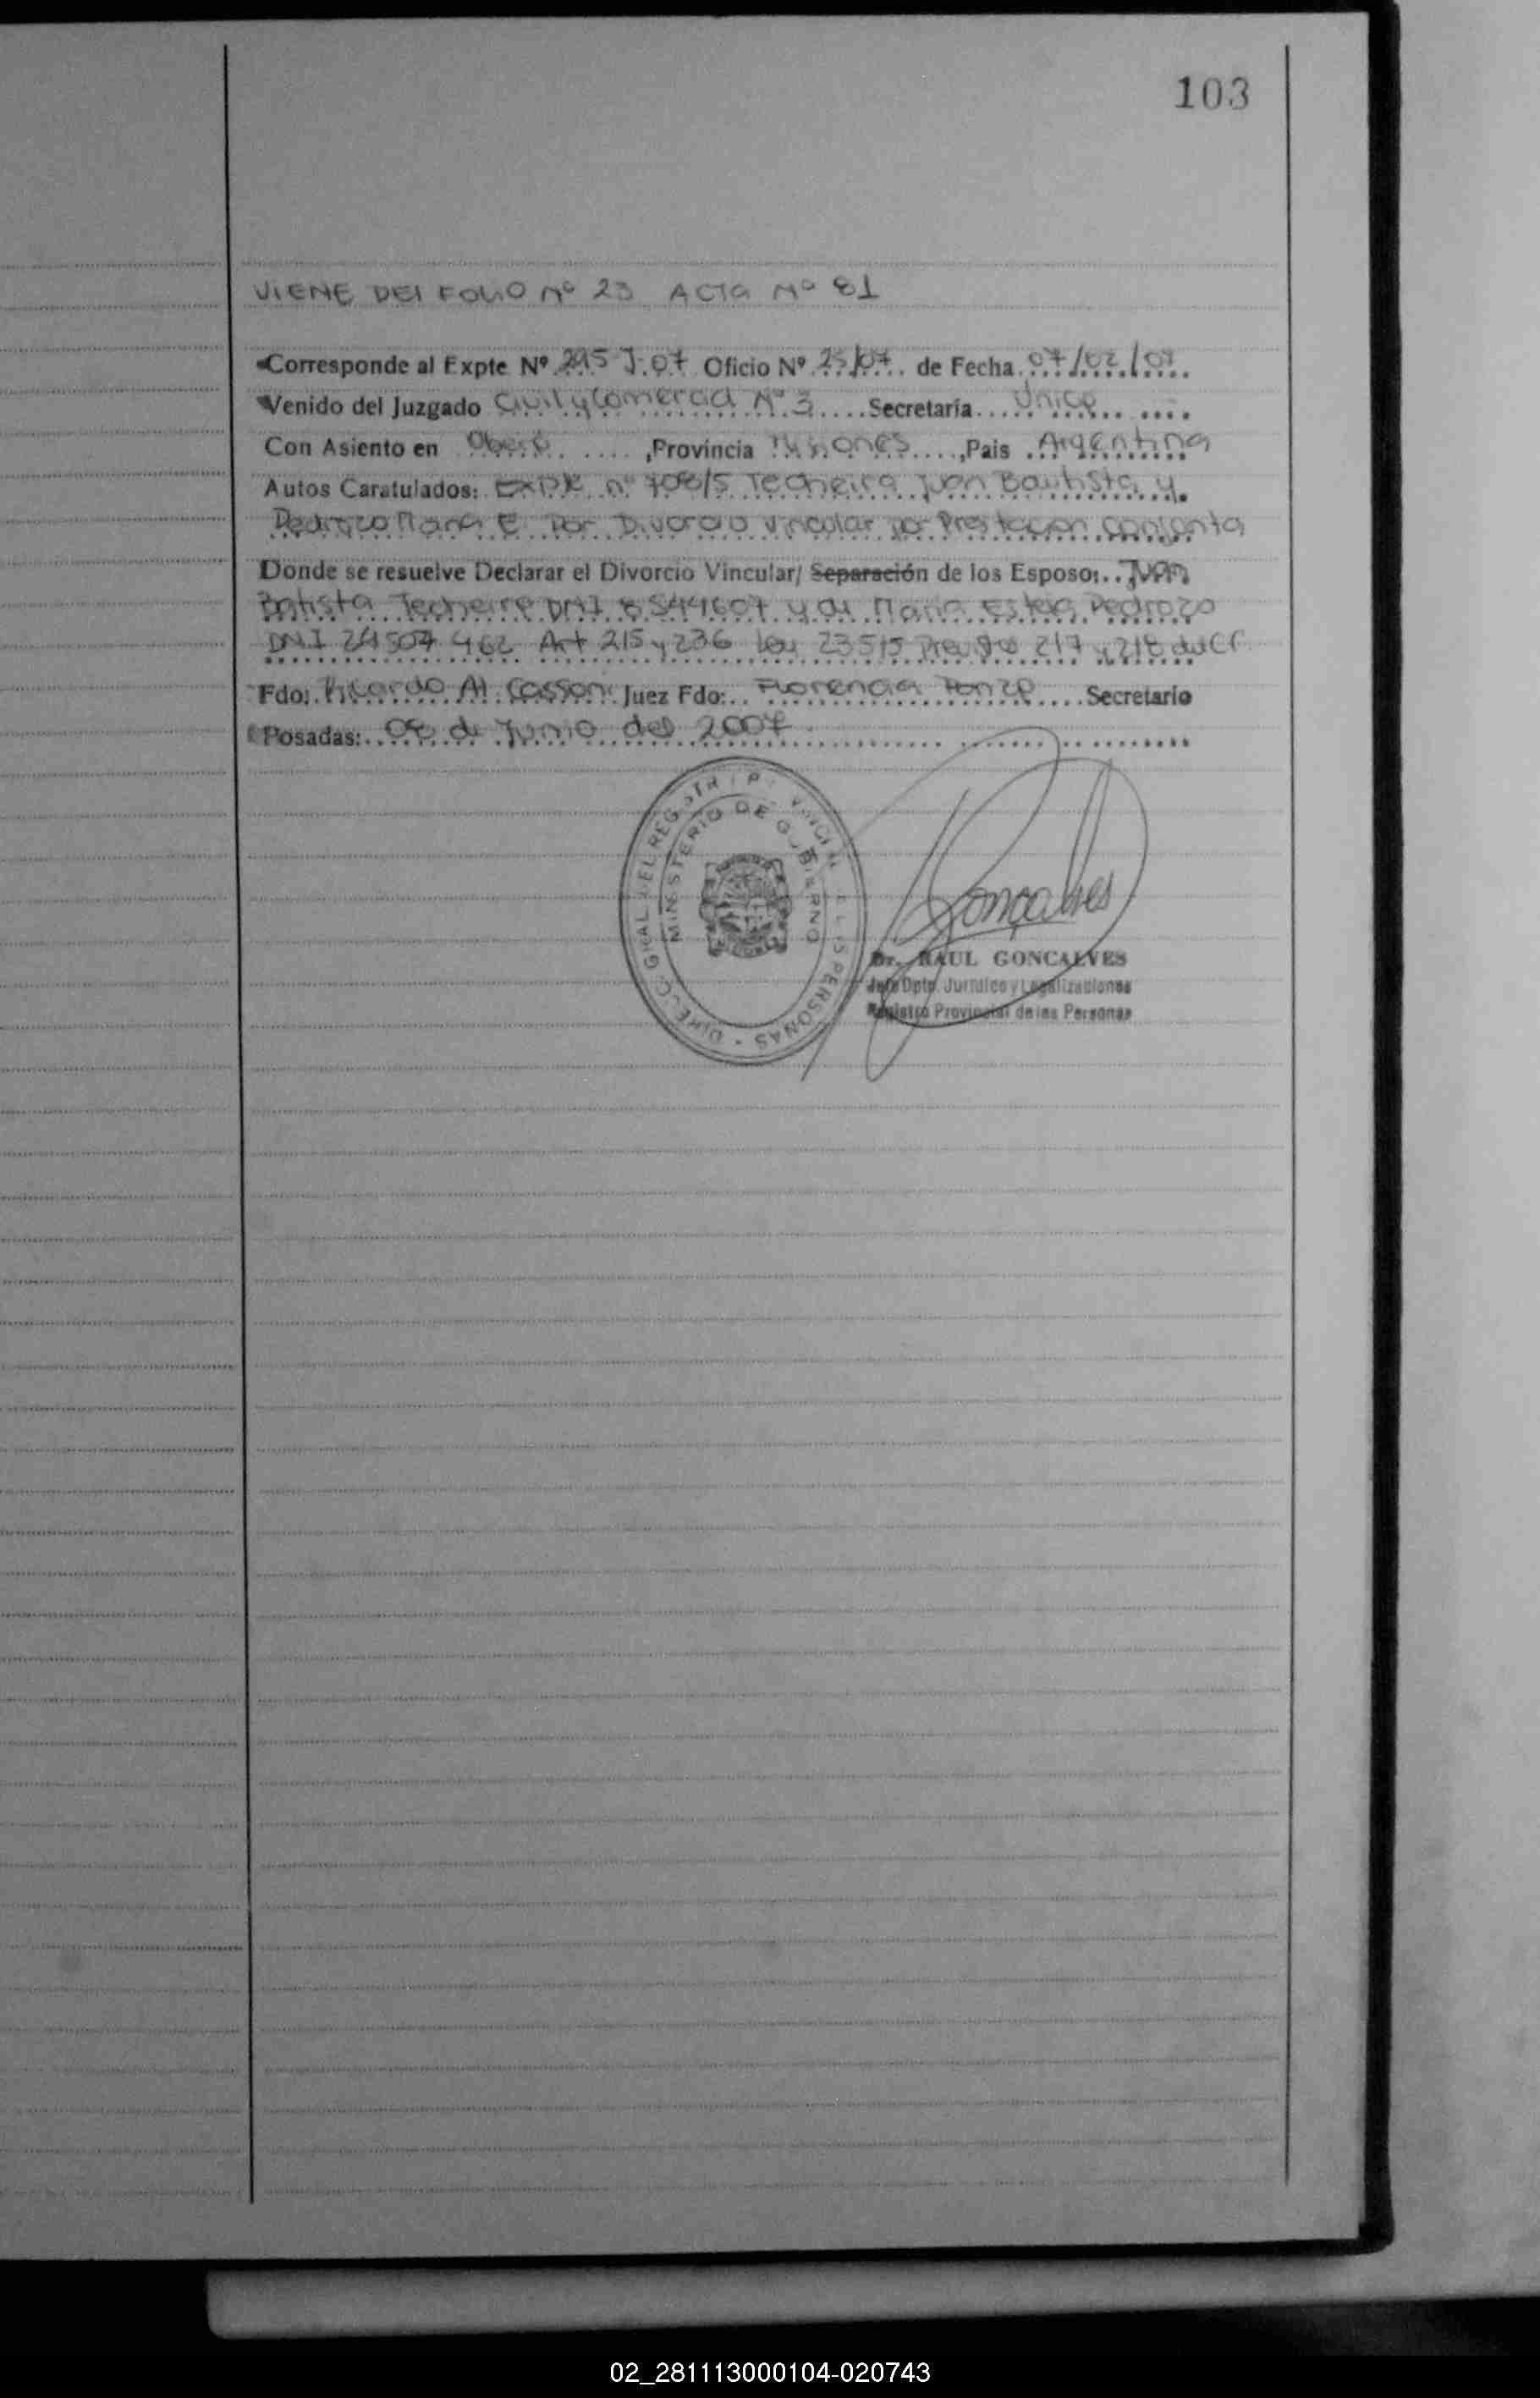 103
VIENE DEl FOLIO Nº 23 ACTA Nº 81
Corresponde al Expte Nº 295 J.07 Oficio Nº 25/07 de Fecha 07/02/07
Venido del Juzgado Civil y Comercial Nº 3 Secretaría Unica
Con Asiento en Oberá ,Provincia Misiones ,Pais Argentina
Autos Caratulados: Expte nº 708/5 Techeira Juan Bautista y
Pedrozo Maria E. Por Divorcio Vincular por Prestacion Conjunta
Donde se resuelve Declarar el Divorcio Vincular/ Separación de los Esposo: Juan
Batista Techeire DNI 8544607 y de Maria Estela Pedrozo
DNI 24507462 Art 215 y 236 Ley 23515 217 y 218 del CC
Fdo: Ricardo Casson Juez Fdo: Florencia Secretario
Posadas: 08 de Junio del 2007
DIRECC. GRAL. DEL REGISTRO PROVINCIAL DE LAS PERSONAS
MINISTERIO DE GOBIERNO
Goncalves
Dr. RAUL GONCALVES
Jefe Dpto. Jurídico y Legalizaciones
Registro Provincial de las Personas
02_281113000104-020743